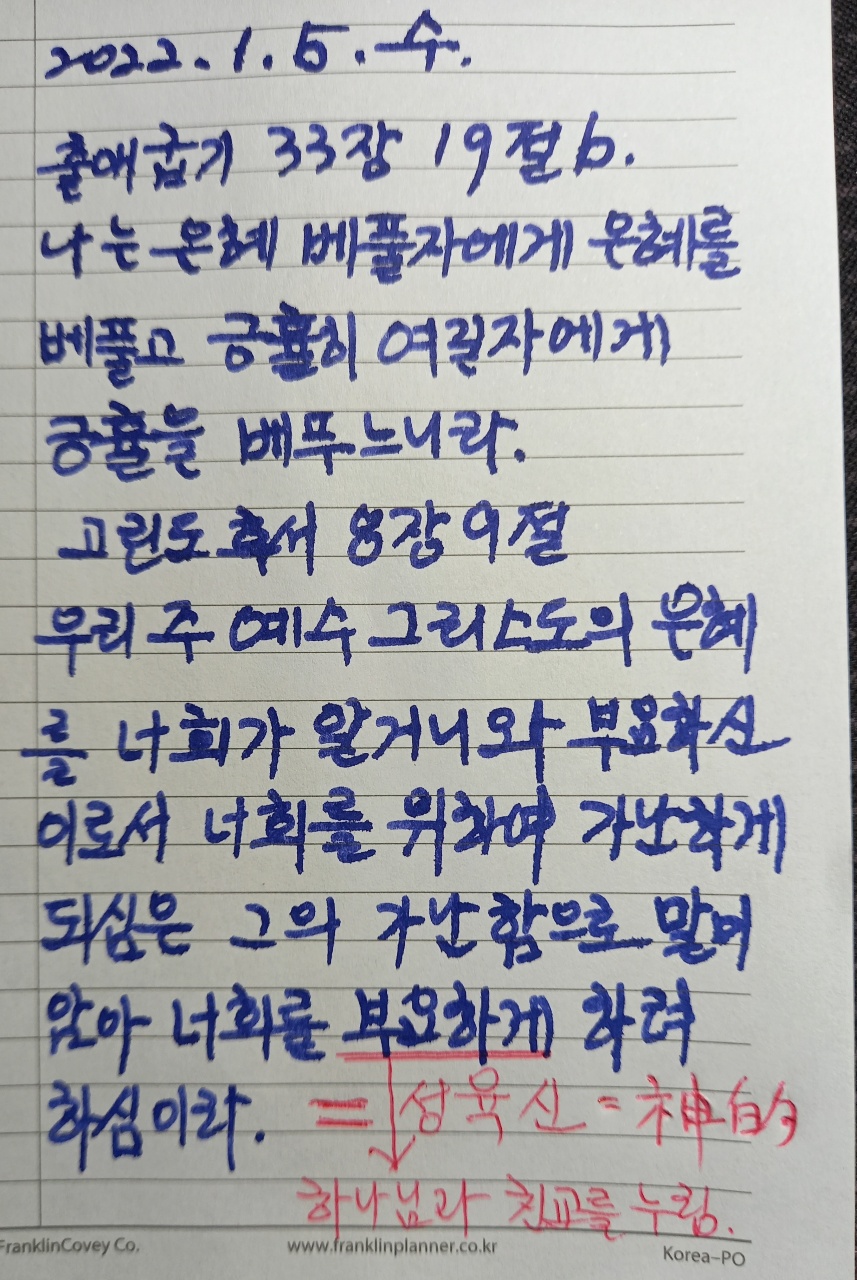 2022. 1. 5. 수.
출애굽기 33장 19절 b.
나는 은혜 베풀자에게 은혜를
베풀고 긍휼히 여길자에게
긍휼을 베푸느니라.
고린도 후서 8장 9절
우리 주 예수 그리스도의 은혜
를 너희가 알거니와 부요하신
이로서 너희를 위하여 가난하게
되심은 그의 가난함으로 말미
암아 너희를 부요하게 하려
하심이라. = 성육신 = 神的
하나님과 친교를 누림.
FranklinCovey Co. www.franklinplanner.co.kr Korea-PO